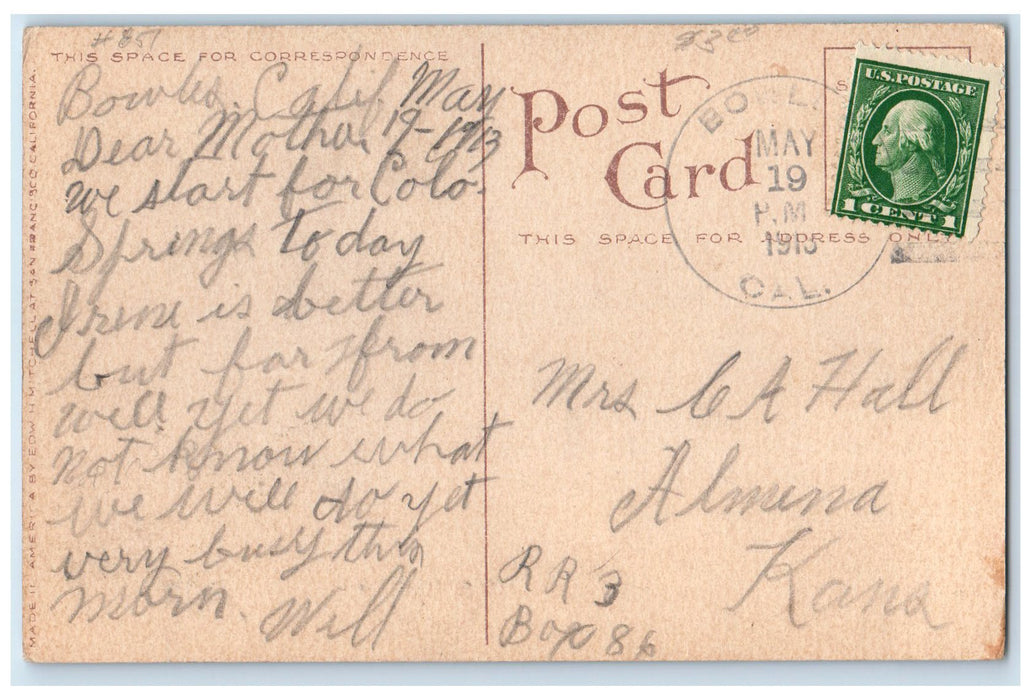 #851
THIS SPACE FOR CORRESPONDENCE
Bowles, Calif, May
Dear Mother 19-1913
we start for Colo.
Springs to day
Irene is better
but far from
well yet we do
not know what
we will do yet
very busy this
morn. Will
MADE IN AMERICA BY EDWARD H MITCHELL AT SAN FRANCISCO CALIFORNIA.
Post
Card
THIS SPACE FOR ADDRESS ONLY
MAY
19
P.M
1913
CAL.
U.S. POSTAGE
1 CENT 1
Mrs C A Hall
Almena
Kans
RR 3
Box 86